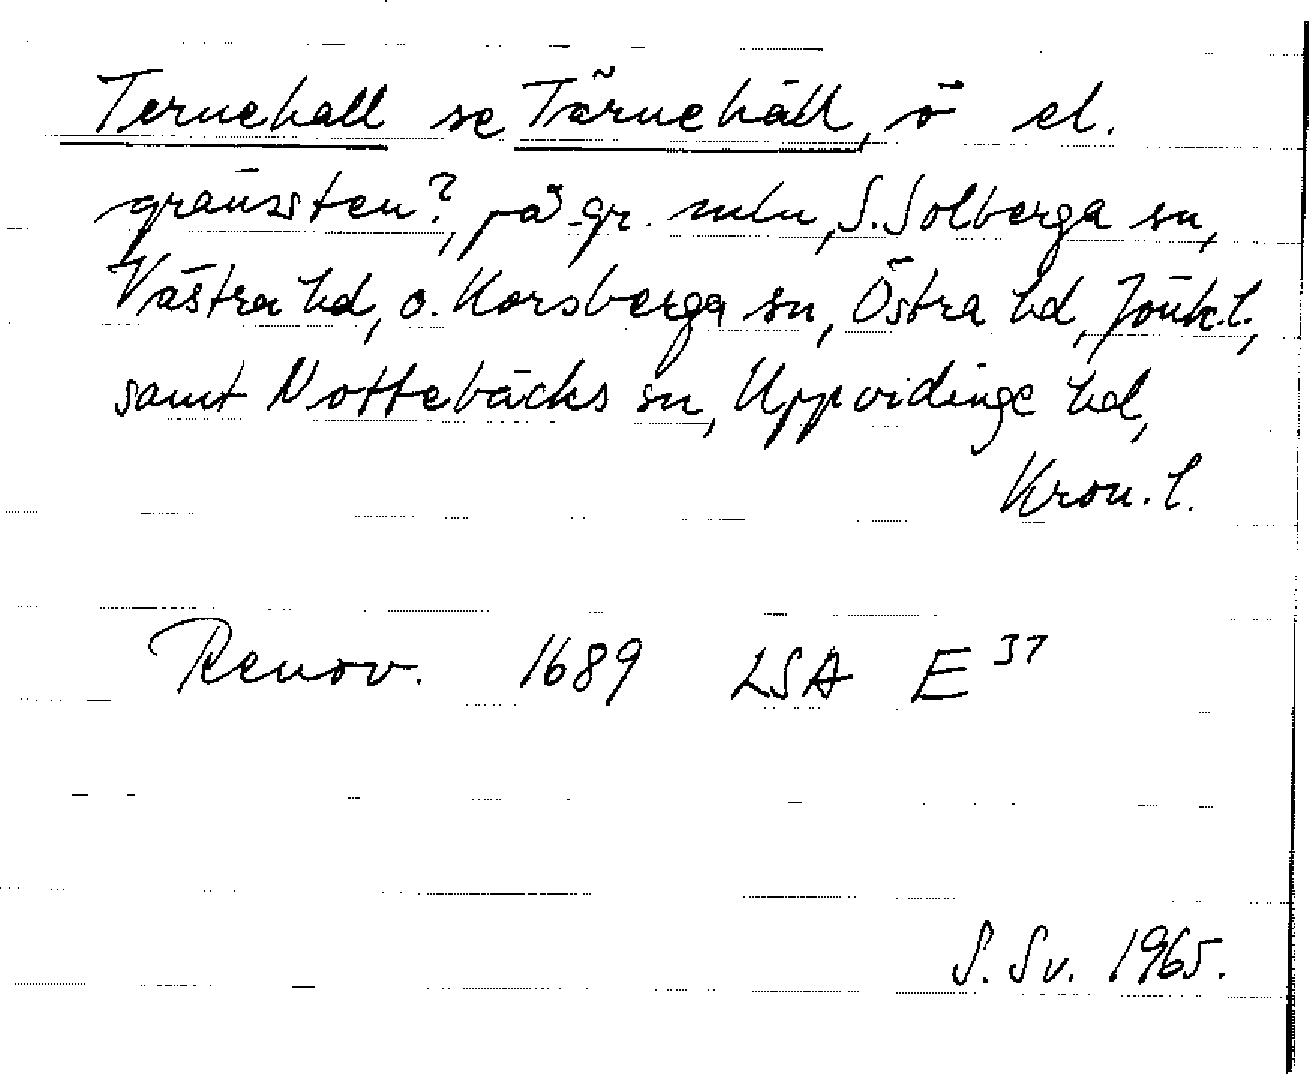 Ternehall se Tärnehäll, ö el.
gränssten?, på gr. mln, S. Solberga sn,
Västra hd, o. Korsberga sn, Östra hd, Jönk.l.,
samt Nottebäcks sn, Uppvidinge hd,
Kron.l.
Renov. 1689 LSA E³⁷
S. Sv. 1965.